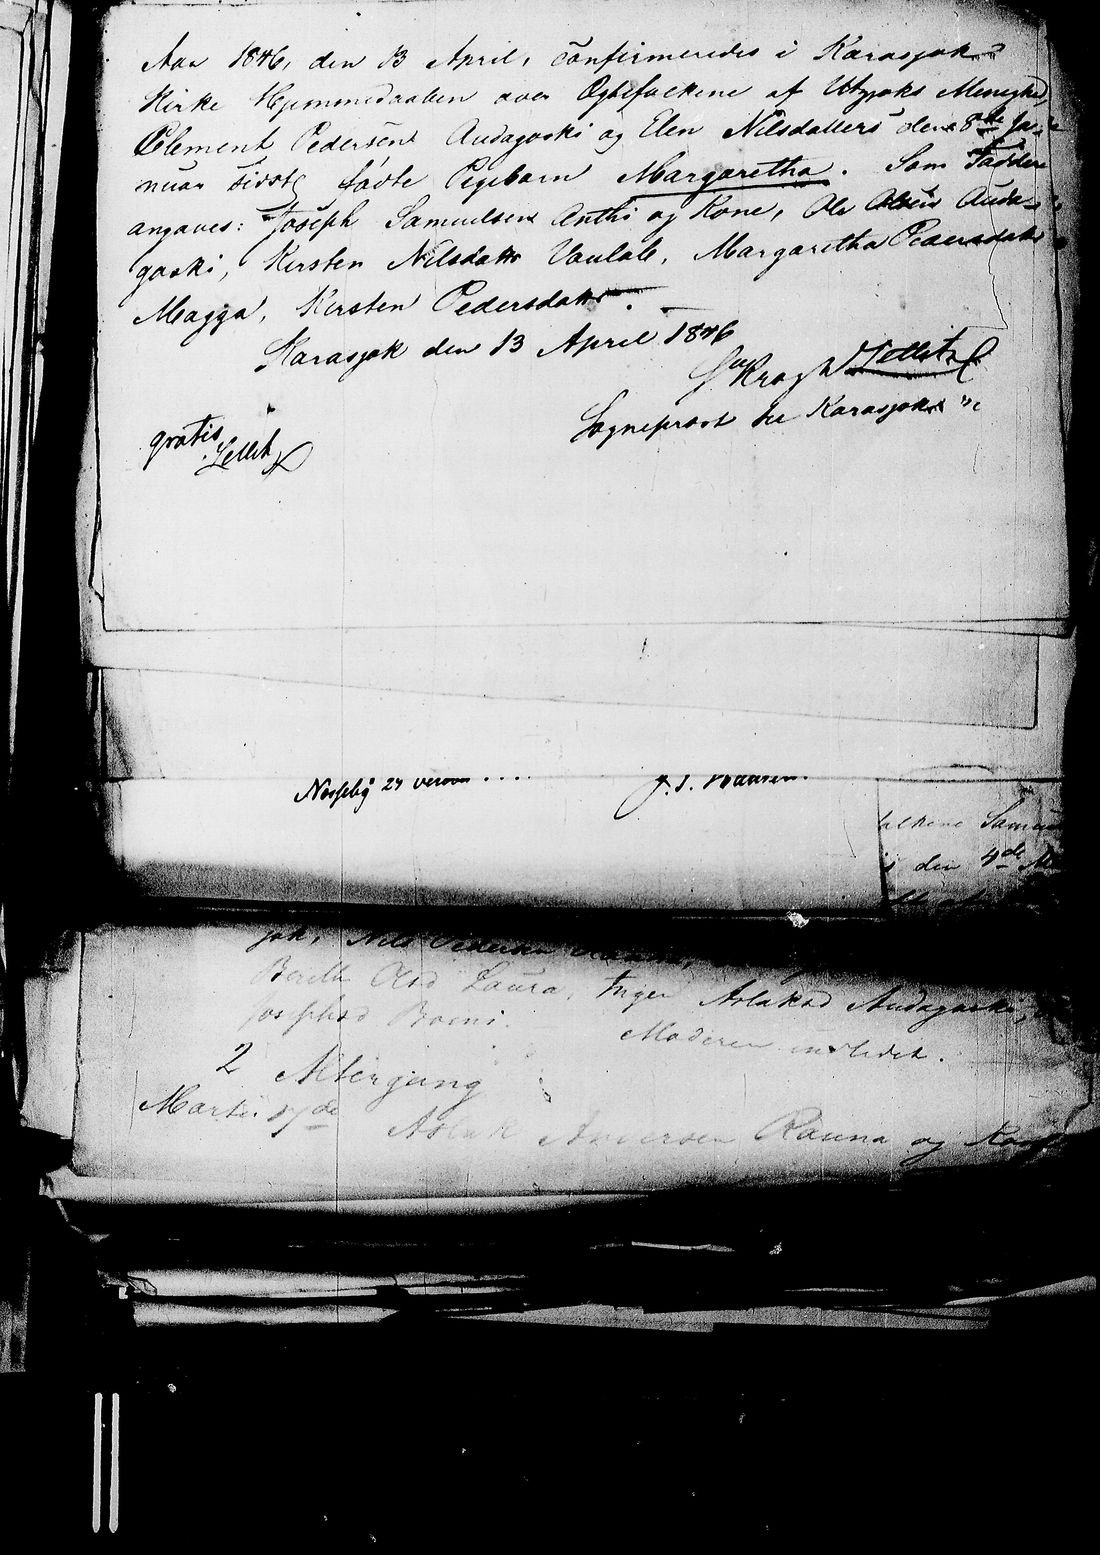 Aar 1846, den 13 April, confirmeredes i Karasjok
Kirke Hjemmedaaben over Egtefolkene af Utsjoks Menighed,
Clement Pedersens Audagoski og Elen Nilsdatters den 8de Ja-
nuar sidst fødte Pigebarn Margaretha. Som Faddere
angaves: Joseph Samuelsen Anthi og Kone, Ole Olsen Auda-
goski, Kirsten Nilsdatter Vaulab, Margaretha Pedersdatter
Magga, Kirsten Pedersdatter.
Karasjok den 13 April 1846
Krogh Zetlitz
Sogneprest til Karasjok
gratis
Zetlitz
Nesseby 27
J. S. Hansen.
Samu
den 4de
jok, Nils Pedersen
Berith Olsd Laura, Inger Aslaksd Audagoski,
Josephsd Moderen indledet.
2 Altergang
Marti 17de Aslak Andersen Rauna og